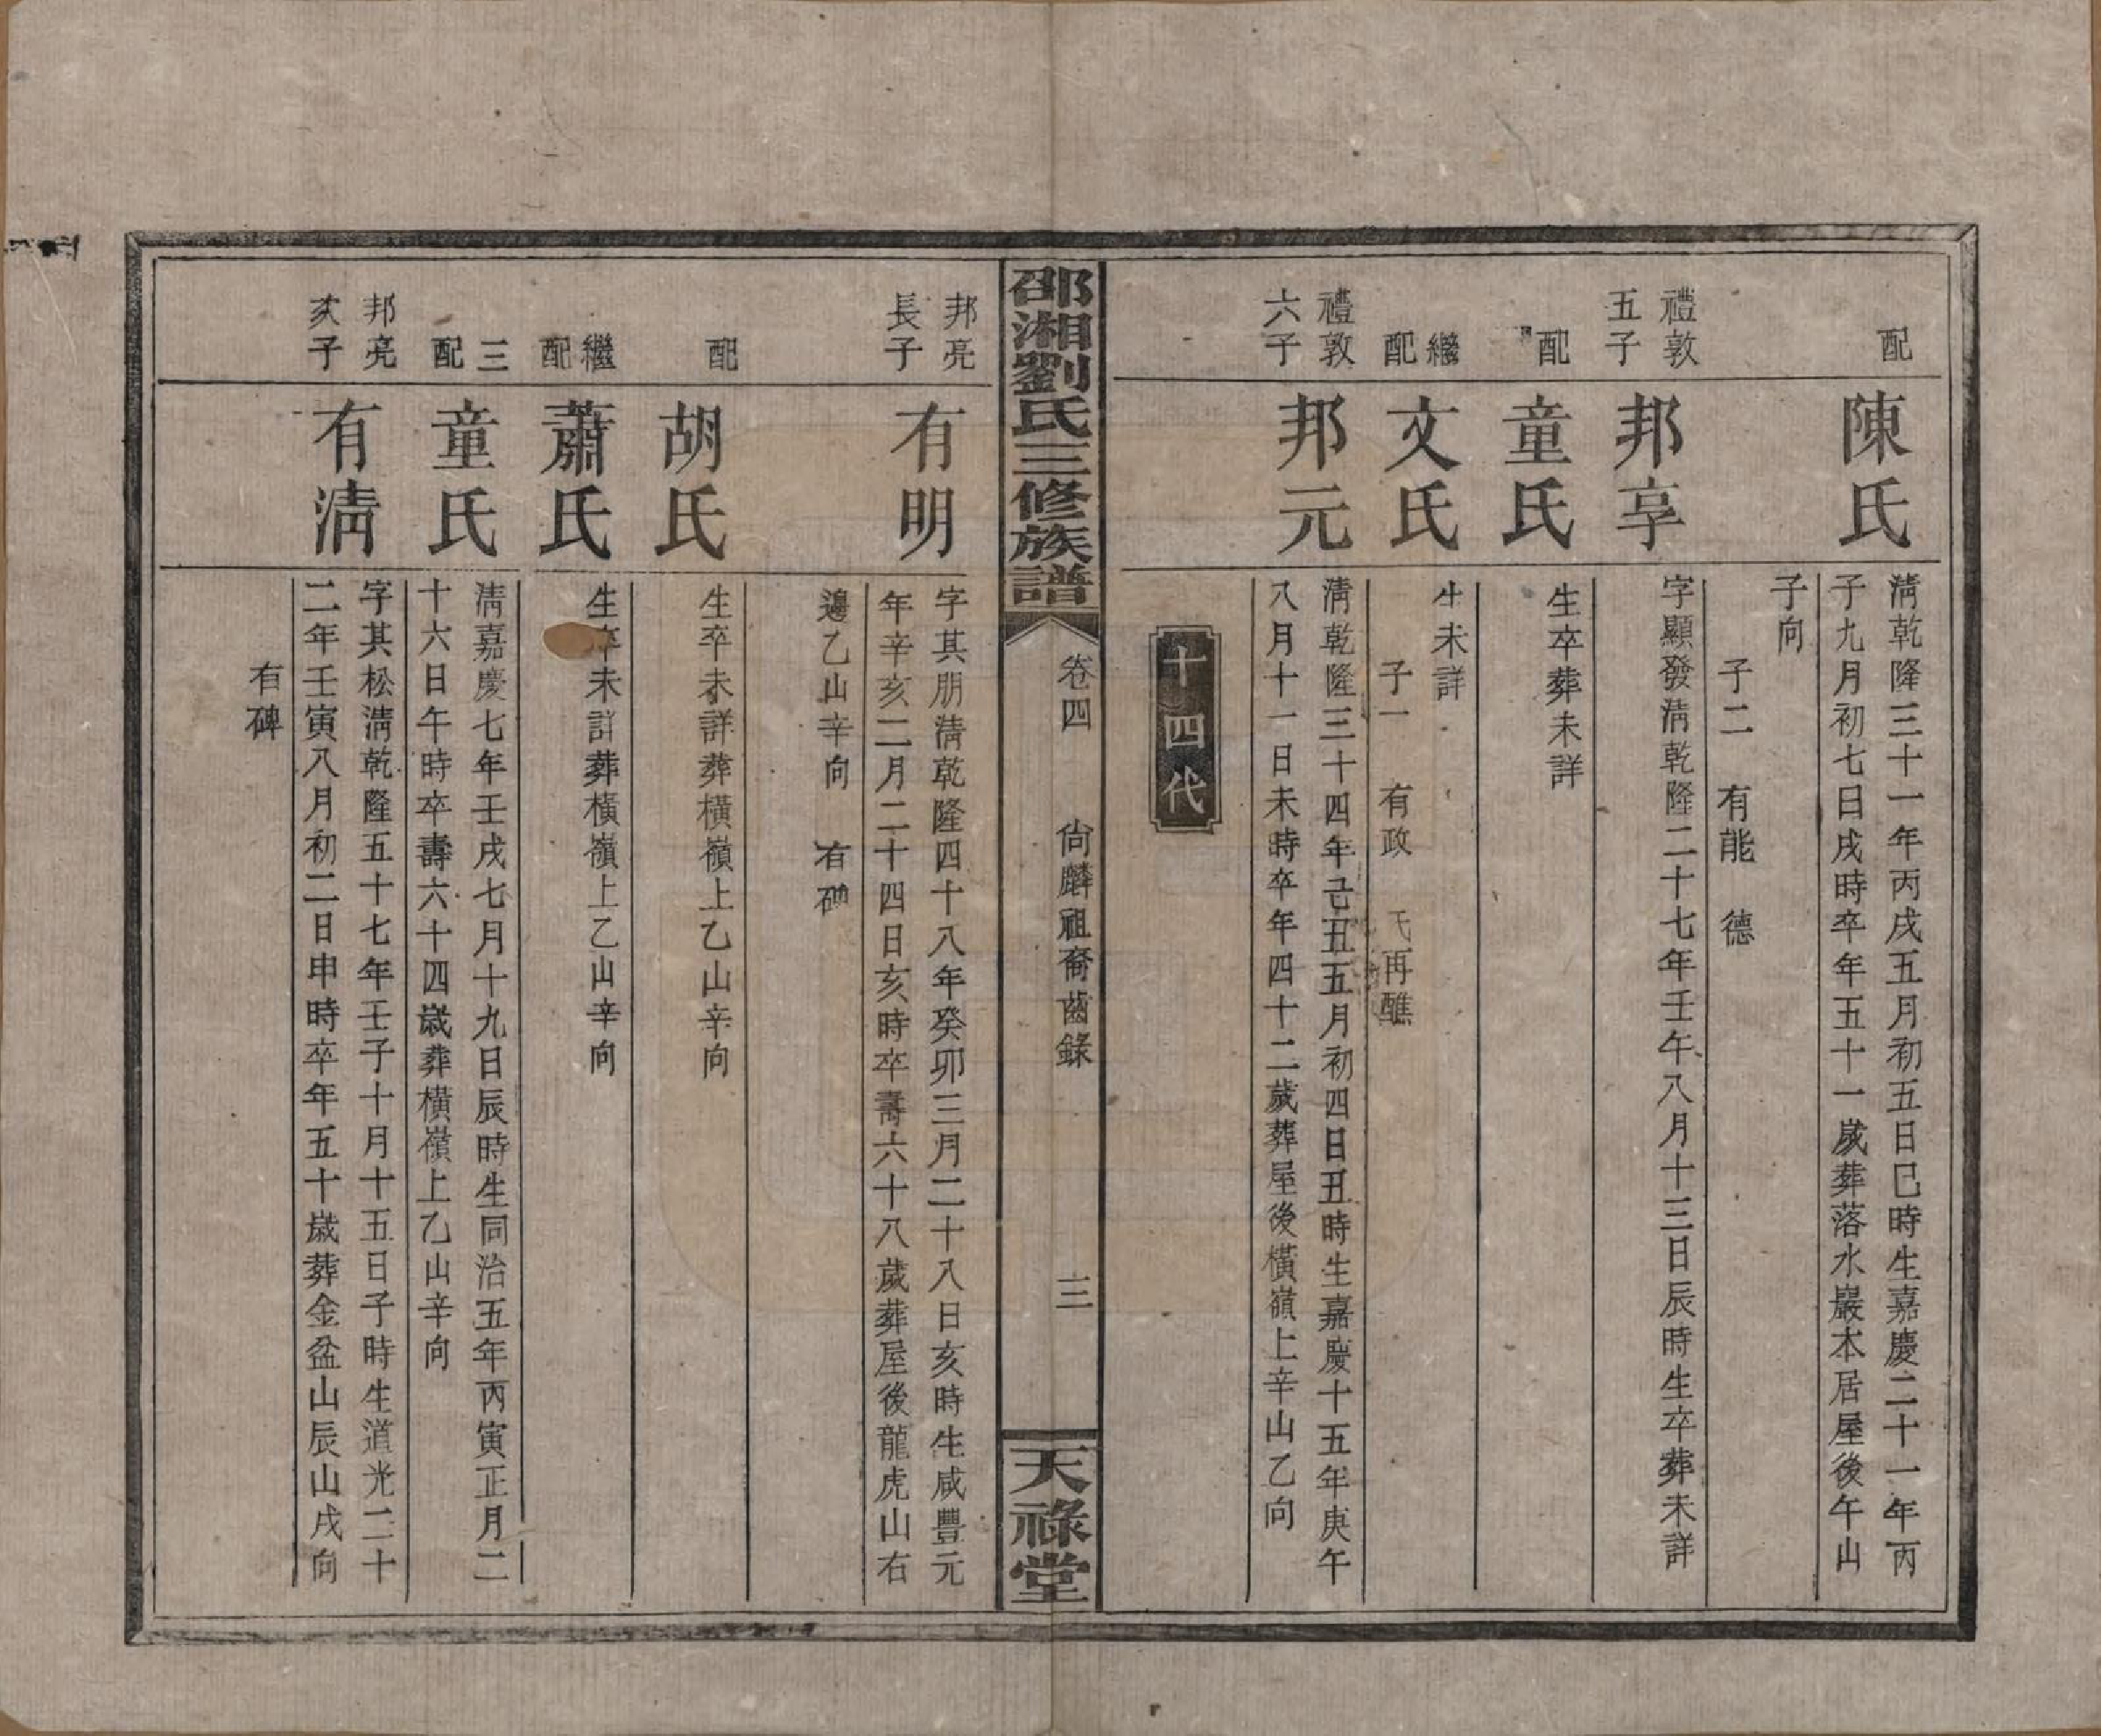 配
陳氏
淸乾隆三十一年丙戌五月初五日巳時生嘉慶二十一年丙
子九月初七日戌時卒年五十一歲葬落水巖本居屋後午山
子向
子二　有能　德
禮敦
五子
邦享
字顯發淸乾隆二十七年壬午八月十三日辰時生卒葬未詳
配
童氏
生卒葬未詳
繼
配
文氏
生未詳
子一　有政　氏再醮
禮敦
六子
邦元
淸乾隆三十四年己丑五月初四日丑時生嘉慶十五年庚午
八月十一日未時卒年四十二歲葬屋後橫嶺上辛山乙向
十四代
邵湘劉氏三修族譜
卷四　尙麟祖裔齒錄
三
天祿堂
邦亮
長子
有明
字其朋淸乾隆四十八年癸卯三月二十八日亥時生咸豐元
年辛亥二月二十四日亥時卒壽六十八歲葬屋後龍虎山右
邊乙山辛向　有碑
配
胡氏
生卒未詳葬橫嶺上乙山辛向
繼
配
蕭氏
生卒未詳葬橫嶺上乙山辛向
三
配
童氏
淸嘉慶七年壬戌七月十九日辰時生同治五年丙寅正月二
十六日午時卒壽六十四歲葬橫嶺上乙山辛向
邦亮
次子
有淸
字其松淸乾隆五十七年壬子十月十五日子時生道光二十
二年壬寅八月初二日申時卒年五十歲葬金盆山辰山戌向
有碑